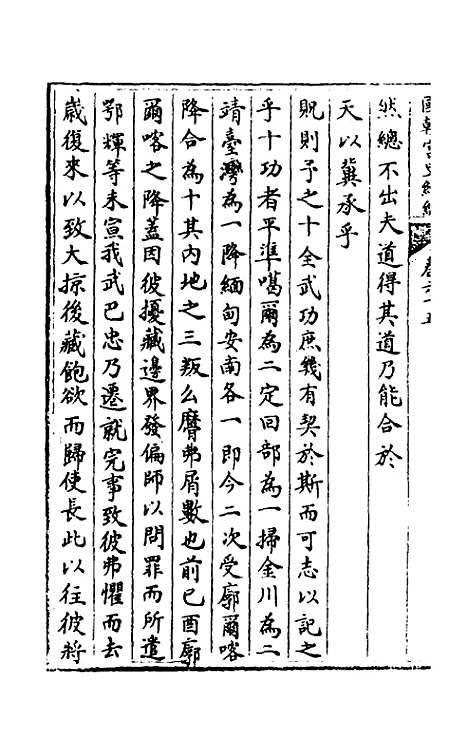 國朝宮史續編 卷六十五
然總不出夫道得其道乃能合於
天以冀承乎
貺則予之十全武功庶幾有契於斯而可志以記之
乎十功者平準噶爾為二定回部為一掃金川為二
靖臺灣為一降緬甸安南各一即今二次受廓爾喀
降合為十其內地之三叛么麿弗屑數也前己酉廓
爾喀之降蓋因彼擾藏邊界發偏師以問罪而所遣
鄂輝等未宣我武巴忠乃遷就完事致彼弗懼而去
歲復來以致大掠後藏飽欲而歸使長此以往彼將